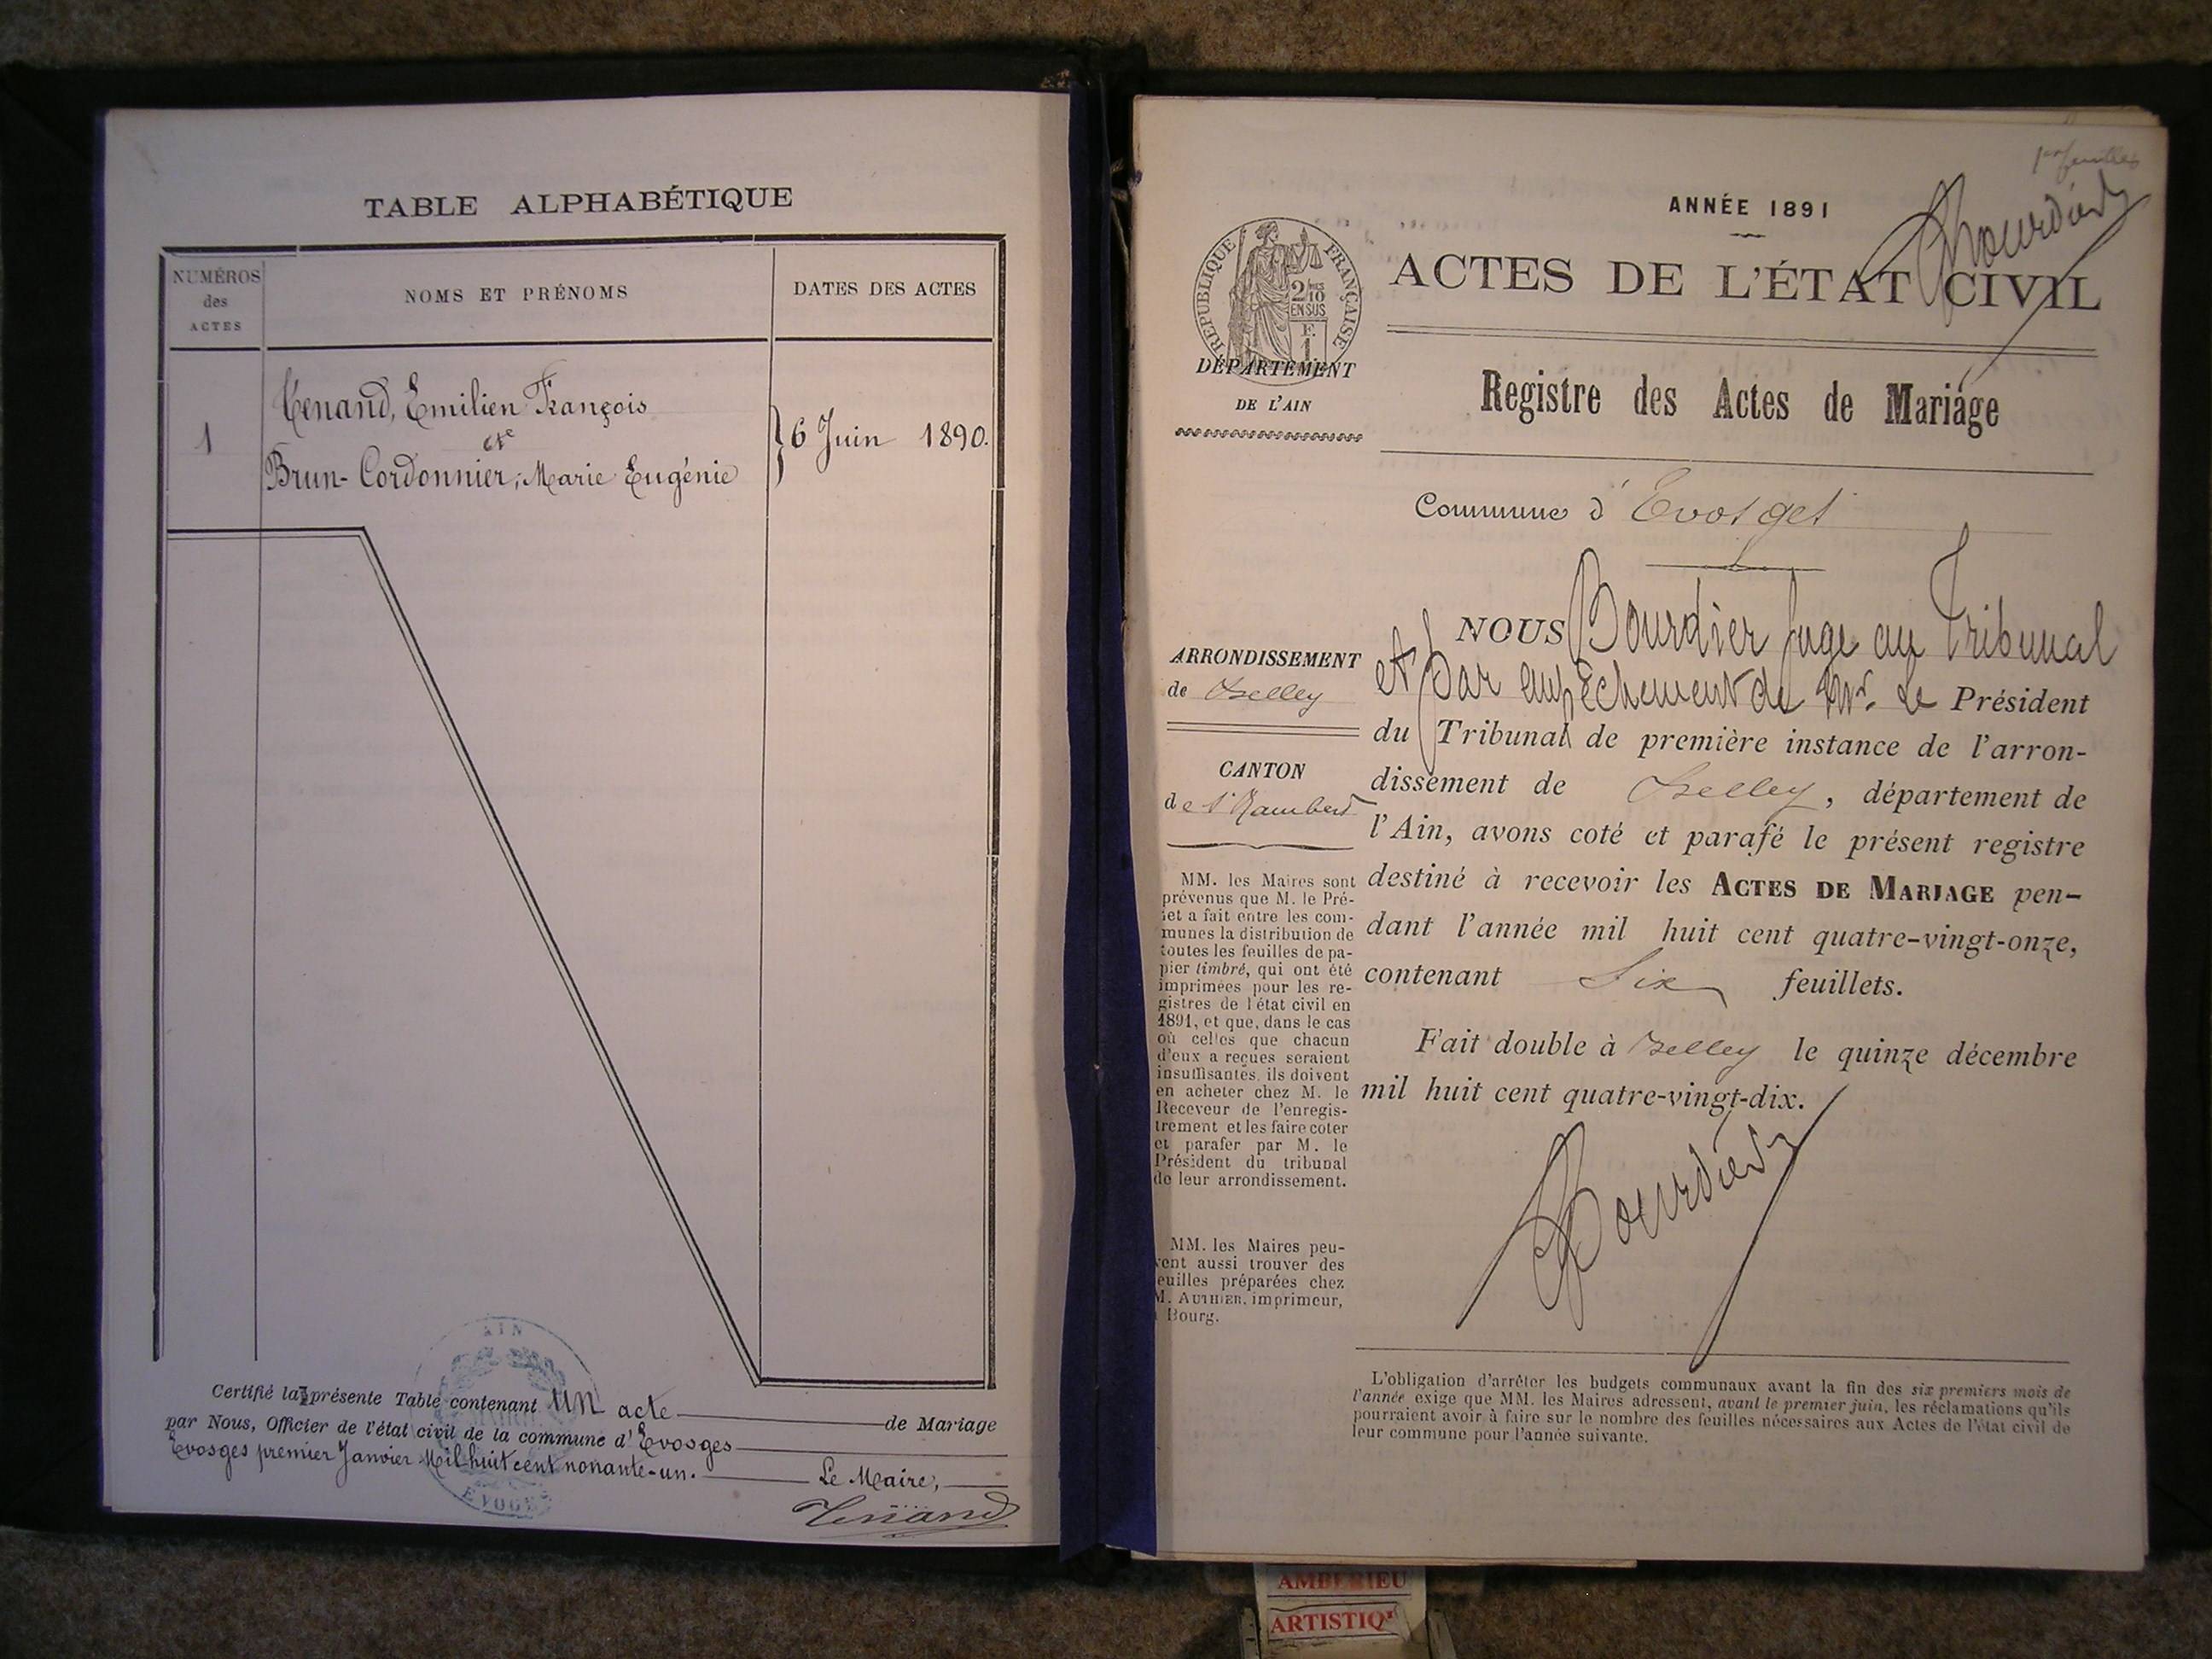 TABLE ALPHABÉTIQUE
NUMÉROS
des
ACTES
NOMS ET PRÉNOMS
DATES DES ACTES
1
Tenand, Emilien François
et
Brun-Cordonnier, Marie Eugénie
6 Juin 1890.
AIN
EVOGES
Certifié la présente Table contenant un acte de Mariage
par Nous, Officier de l'état civil de la commune d'Evosges
Evosges premier Janvier Mil huit cent nonante-un. Le Maire,
Tenand
1er feuillet
Bourdier
ANNÉE 1891
ACTES DE L'ÉTAT CIVIL
RÉPUBLIQUE FRANÇAISE
2/10
EN SUS
F.
1
DÉPARTEMENT
DE L'AIN
Registre des Actes de Mariage
Commune d'Evosges
ARRONDISSEMENT
de Belley
CANTON
de St Rambert
NOUS Bourdier Juge au Tribunal
et par empêchement de Mr. Le Président
du Tribunal de première instance de l'arron-
dissement de Belley, département de
l'Ain, avons coté et parafé le présent registre
destiné à recevoir les ACTES DE MARIAGE pen-
dant l'année mil huit cent quatre-vingt-onze,
contenant Six feuillets.
Fait double à Belley le quinze décembre
mil huit cent quatre-vingt-dix.
Bourdier
MM. les Maires sont
prévenus que M. le Pré-
fet a fait entre les com-
munes la distribution de
toutes les feuilles de pa-
pier timbré, qui ont été
imprimées pour les re-
gistres de l'état civil en
1891, et que, dans le cas
où celles que chacun
d'eux a reçues seraient
insuffisantes, ils doivent
en acheter chez M. le
Receveur de l'enregis-
trement et les faire coter
et parafer par M. le
Président du tribunal
de leur arrondissement.
MM. les Maires peu-
vent aussi trouver des
feuilles préparées chez
M. AUTHIER, imprimeur,
à Bourg.
L'obligation d'arrêter les budgets communaux avant la fin des six premiers mois de
l'année exige que MM. les Maires adressent, avant le premier juin, les réclamations qu'ils
pourraient avoir à faire sur le nombre des feuilles nécessaires aux Actes de l'état civil de
leur commune pour l'année suivante.
AMBERIEU
ARTISTIQ